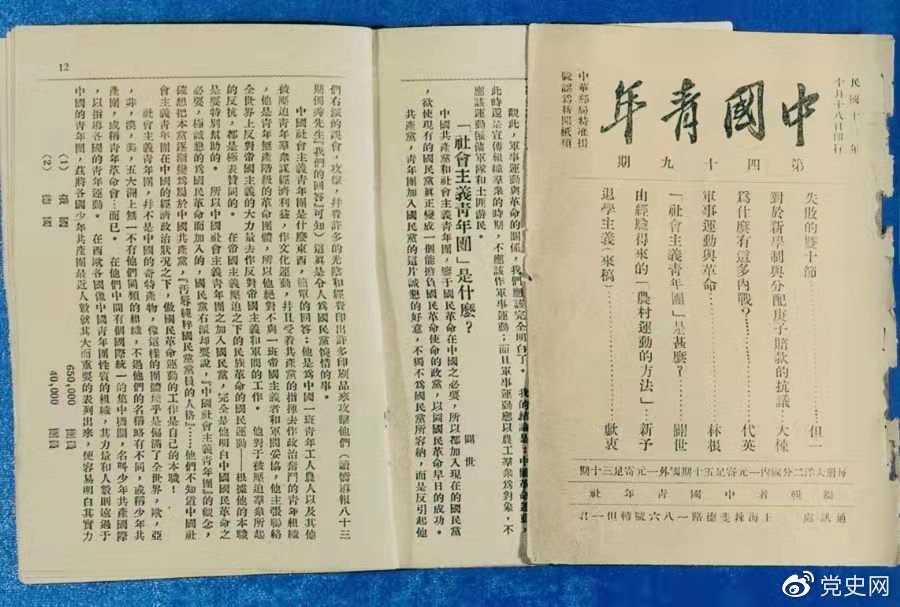 民國十年
十月十八日刊行
中國青年
中華郵局特准掛
號認爲新聞紙類
第四十九期
失敗的雙十節……但一
對於新學制與分配庚子賠款的抗議…大悚
爲什麼有這多內戰?……代英
軍事運動與革命……林根
「社會主義青年團」是甚麼?……闢世
由經驗得來的「農村運動的方法」…新予
退學主義(來稿)……獻衷
每册大洋二分國內一元寄足五十期國外一元寄足三十期
編輯者中國青年社
通訊處 上海辣斐德路一八六號轉但一君
觀此,軍事運動與革命的關係,我們應該完全明白了。我的結論是:中國革命
此時還是宣傳組織羣衆的時期,不應該作軍事運動;而且軍事運動應以農工羣衆爲對象,不
應該運動僱傭軍隊和土匪游民。
「社會主義青年團」是什麼?
闢世
中國共產黨和社會主義青年團,鑒于國民革命在中國之必要,所以都加入現在的國民黨
,欲使現有的國民黨眞正變成一個能擔負國民革命使命的政黨,以圖國民革命早日的成功。
共產黨,青年團加入國民黨的這片誠懇的好意,不獨不爲國民黨所容納,而是反引起他
12
們右派的誤會,攻擊,幷費許多的光陰和經費印出許多印刷品來攻擊他們(讀嚮導報八十三
期獨秀先生『我們的回答』可知)這眞是令人爲國民黨惋惜的事。
中國社會主義青年團是什麼東西,簡單的回答:他是爲中國一班青年工人農人以及其他
被壓迫青年羣衆謀經濟利益,作文化運動,幷且受着共產黨的指揮去作政治奮鬥的青年組織
,他是青年無產階級的革命團體,所以他絕對不與一班帝國主義者和軍閥妥協,他主張聯絡
全世界上反對帝國主義的大力量去作反對帝國主義和軍閥的工作。他對于被壓迫羣衆所起
的反抗,都是極表贊同的。在帝國主義壓迫之下的民族革命的國民運動——根據他的本職
是要特別幫助的。所以中國社會主義青年團之加入國民黨,完全是他明白中國國民革命之
必要,極誠懇的爲國民革命而加入的,國民黨右派却要說,『中國社會主義青年團』的觀念,
確想把本黨逐漸變爲屬於中國共產黨,『汚辱純粹國民黨黨員的人格』……他們不知道中國社
會主義青年團在中國的經濟政治狀況之下,做國民革命運動的工作是自己的本職!
社會主義青年團,并不是中國的奇特產物,像這樣的團體幾乎是偏滿了全世界,歐,亞
,非,澳,美,五大洲上無一不有他們同類的組織,不過他們的名稱略有不同,或稱少年共
產團,或稱青年革命會…而已。在他們中間有個國際統一的集中機關,名呌少年共產國際
,以指導各國的青年運動。在西歐各國像中國青年團性質的組織,其力量和人數則遠過于
中國的青年團,茲將各國少年共產團最近人數就其大而重要的表列出來,便容易明白其實力
(1)
650,000 團員
(2)
40,000 團員
党史网